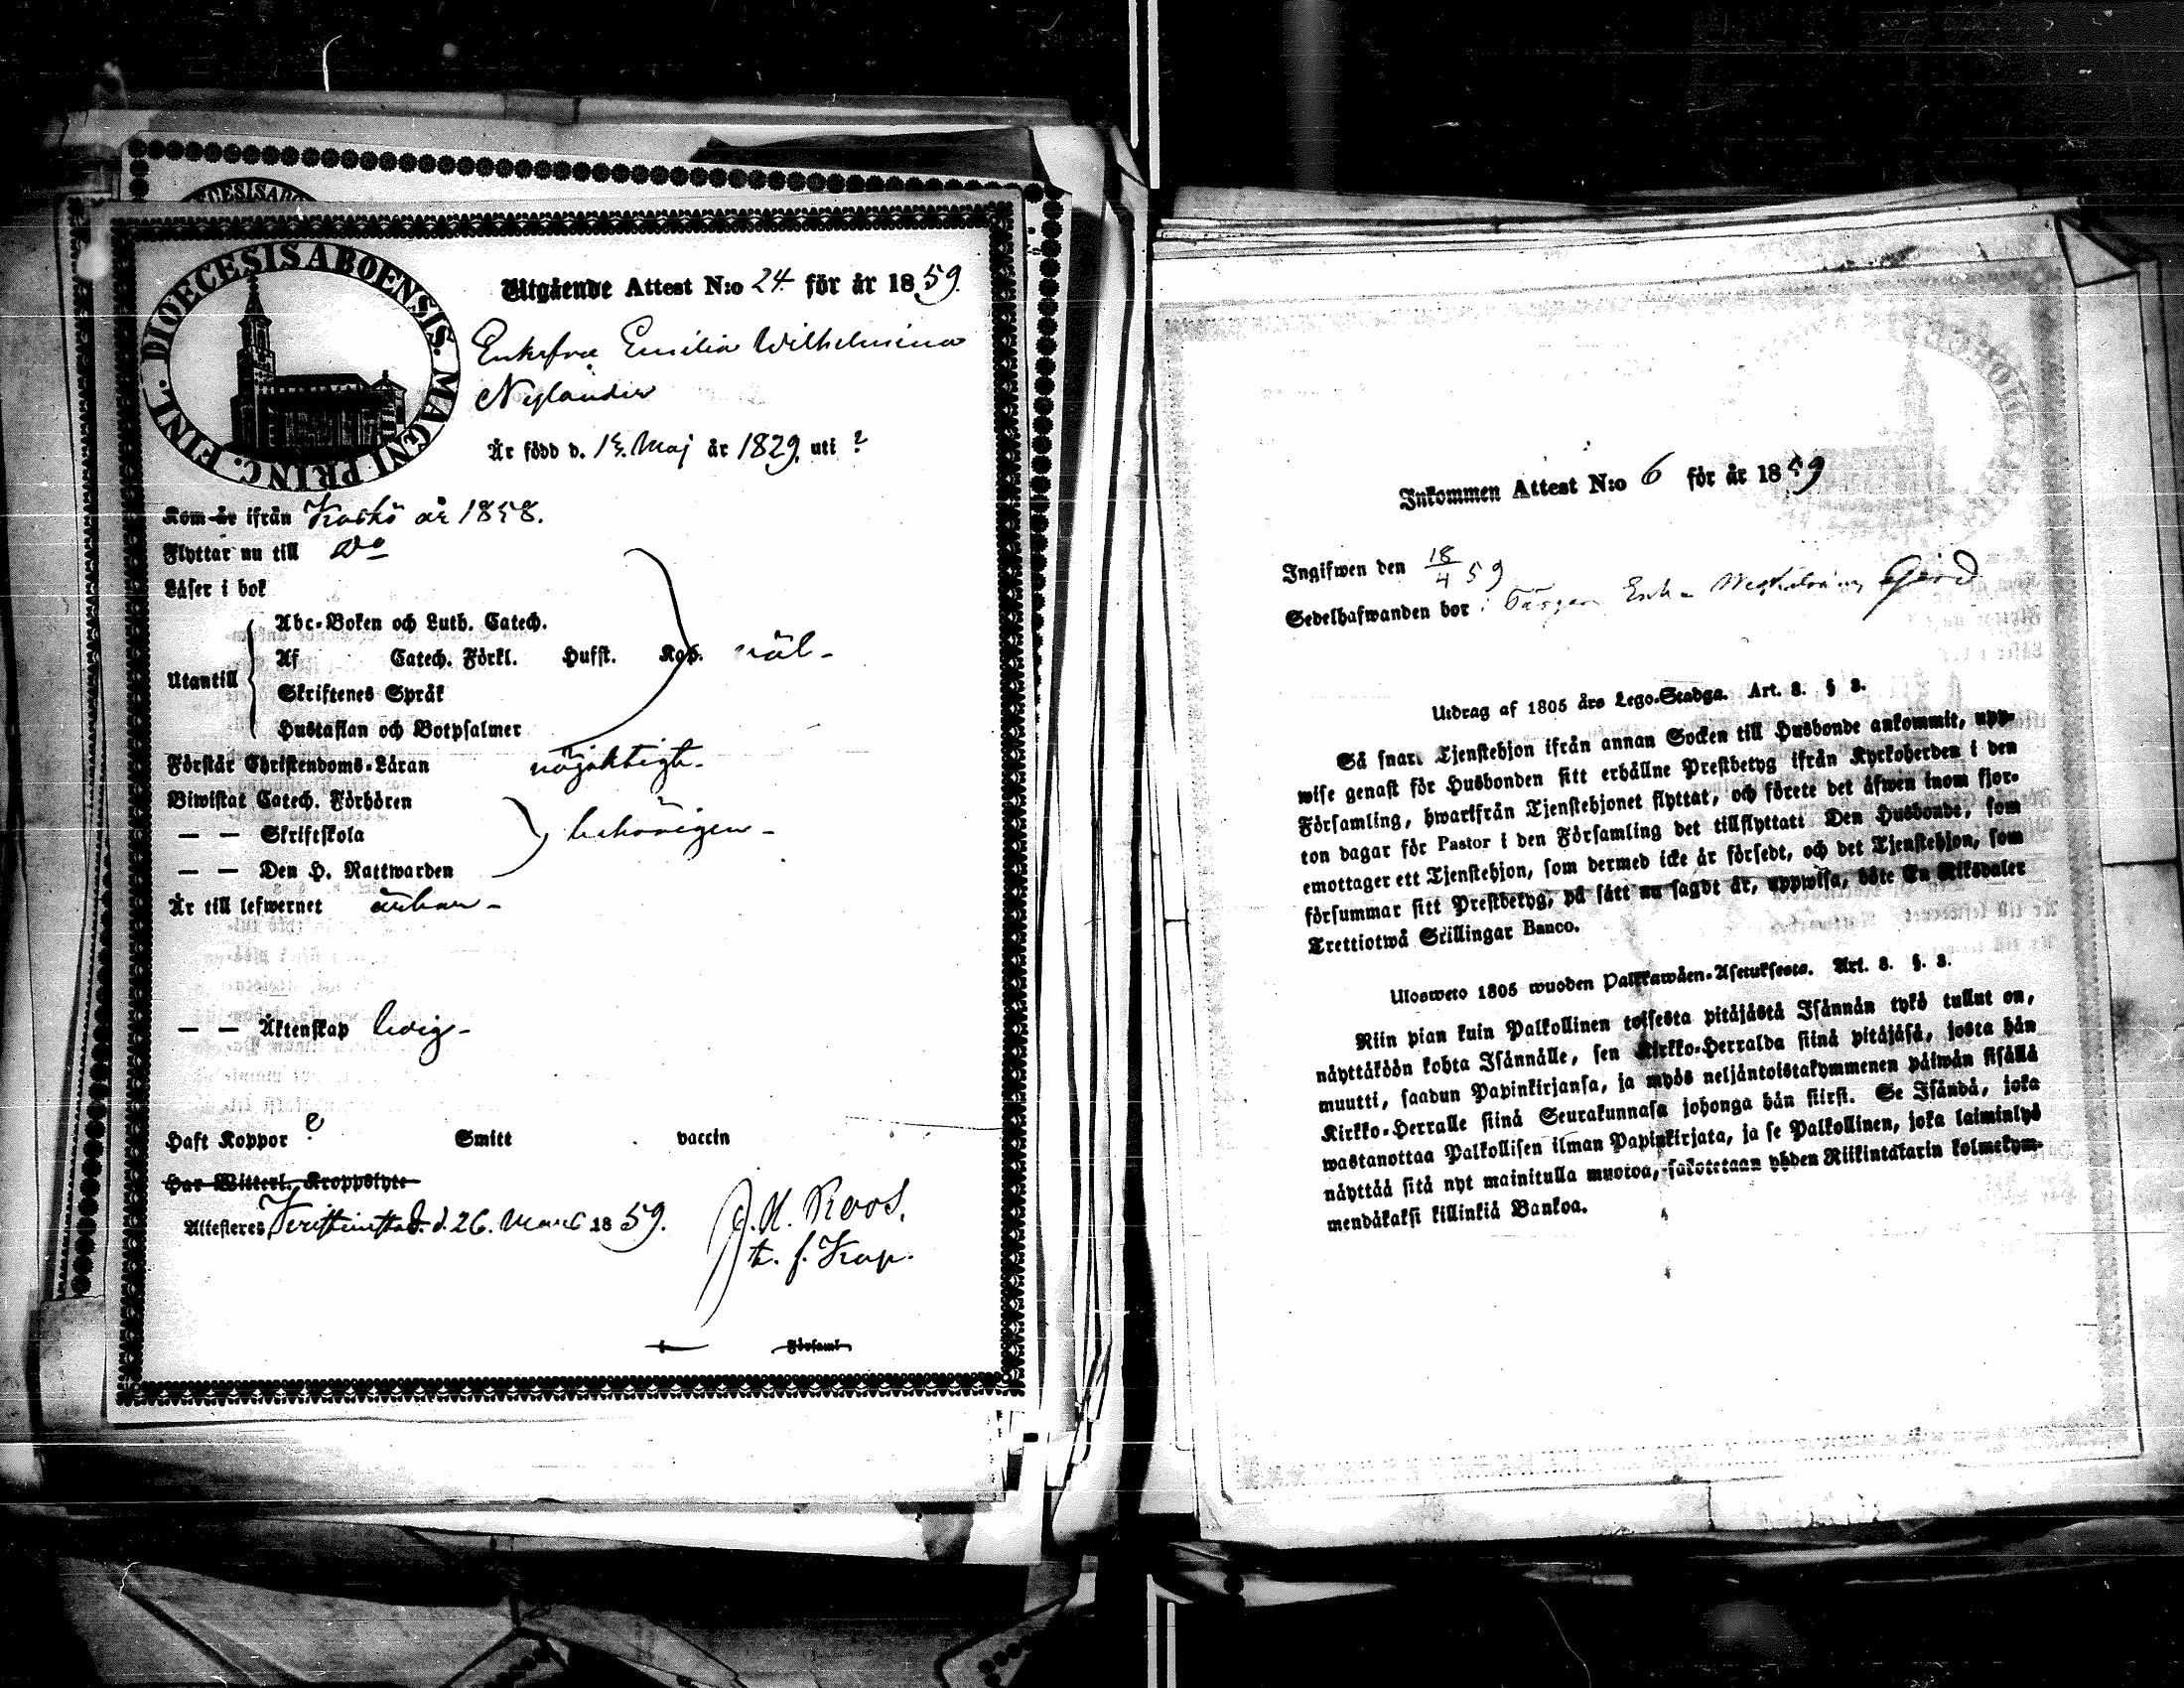 DIOECESIS ABOENSIS. MAGNI PRINC. FINL.
Utgående Attest N:o 24 för år 1859.
Enkefru Emilia Wilhelmina
Nylander
Är född d. 15. Maj år 1829. uti ?
Kom år ifrån Kaskö år 1858.
Flyttar nu till Do
Läser i bok
Abc-Boken och Luth. Catech.
Af Catech. Förkl. Hufst. Kap. väl-
Utantill
Skriftenes Språk
Hustaflan och Botpsalmer
Förstår Christendoms-Läran nöjaktigt-
Biwistat Catech. Förhören
— — Skriftskola behörigen-
— — Den H. Nattwarden
Är till lefwernet ärbar-
— — Äktenskap ledig-
Haft Koppor ? Smitt vaccin
Har Witterl. Kroppslyte
Attesteras Christinestad d. 26. Mars 1859.
Roos.
t. f. Kap.
Församl
Inkommen Attest N:o 6 för år 1859
Ingifwen den 18/4 59
Sedelhafwanden bor i
Utdrag af 1805 års Lego-Stadga. Art. 3. § 3.
Så snart Tjenstehjon ifrån annan Socken till Husbonde ankommit, upp-
wise genast för Husbonden sitt erhållne Prestbetyg ifrån Kyrkoherden i den
Församling, hwarifrån Tjenstehjonet flyttat, och förete det äfwen inom fjor-
ton dagar för Pastor i den Församling det tillflyttat: Den Husbonde, som
emottager ett Tjenstehjon, som dermed icke är försedt, och det Tjenstehjon, som
försummar sitt Prestbetyg, på sätt nu sagdt är, uppwisa, böte En Riksdaler
Trettiotwå Skillingar Banco.
Ulosweto 1805 wuoden Palkkawäen-Asetuksesta. Art. 3. §. 3.
Niin pian kuin Palkollinen toisesta pitäjästä Isännän tykö tullut on,
näyttäköön kohta Isännälle, sen Kirkko-Herralda siinä pitäjäsä, josta hän
muutti, saadun Papinkirjansa, ja myös neljäntoistakymmenen päiwän sisällä
Kirkko-Herralle siinä Seurakunnasa johonga hän siirsi. Se Isändä, joka
wastanottaa Palkollisen ilman Papinkirjata, ja se Palkollinen, joka laiminlyö
näyttää sitä nyt mainitulla muotoa, sakotetaan yhden Riikintalarin kolmekym-
mendäkaksi killinkiä Bankoa.